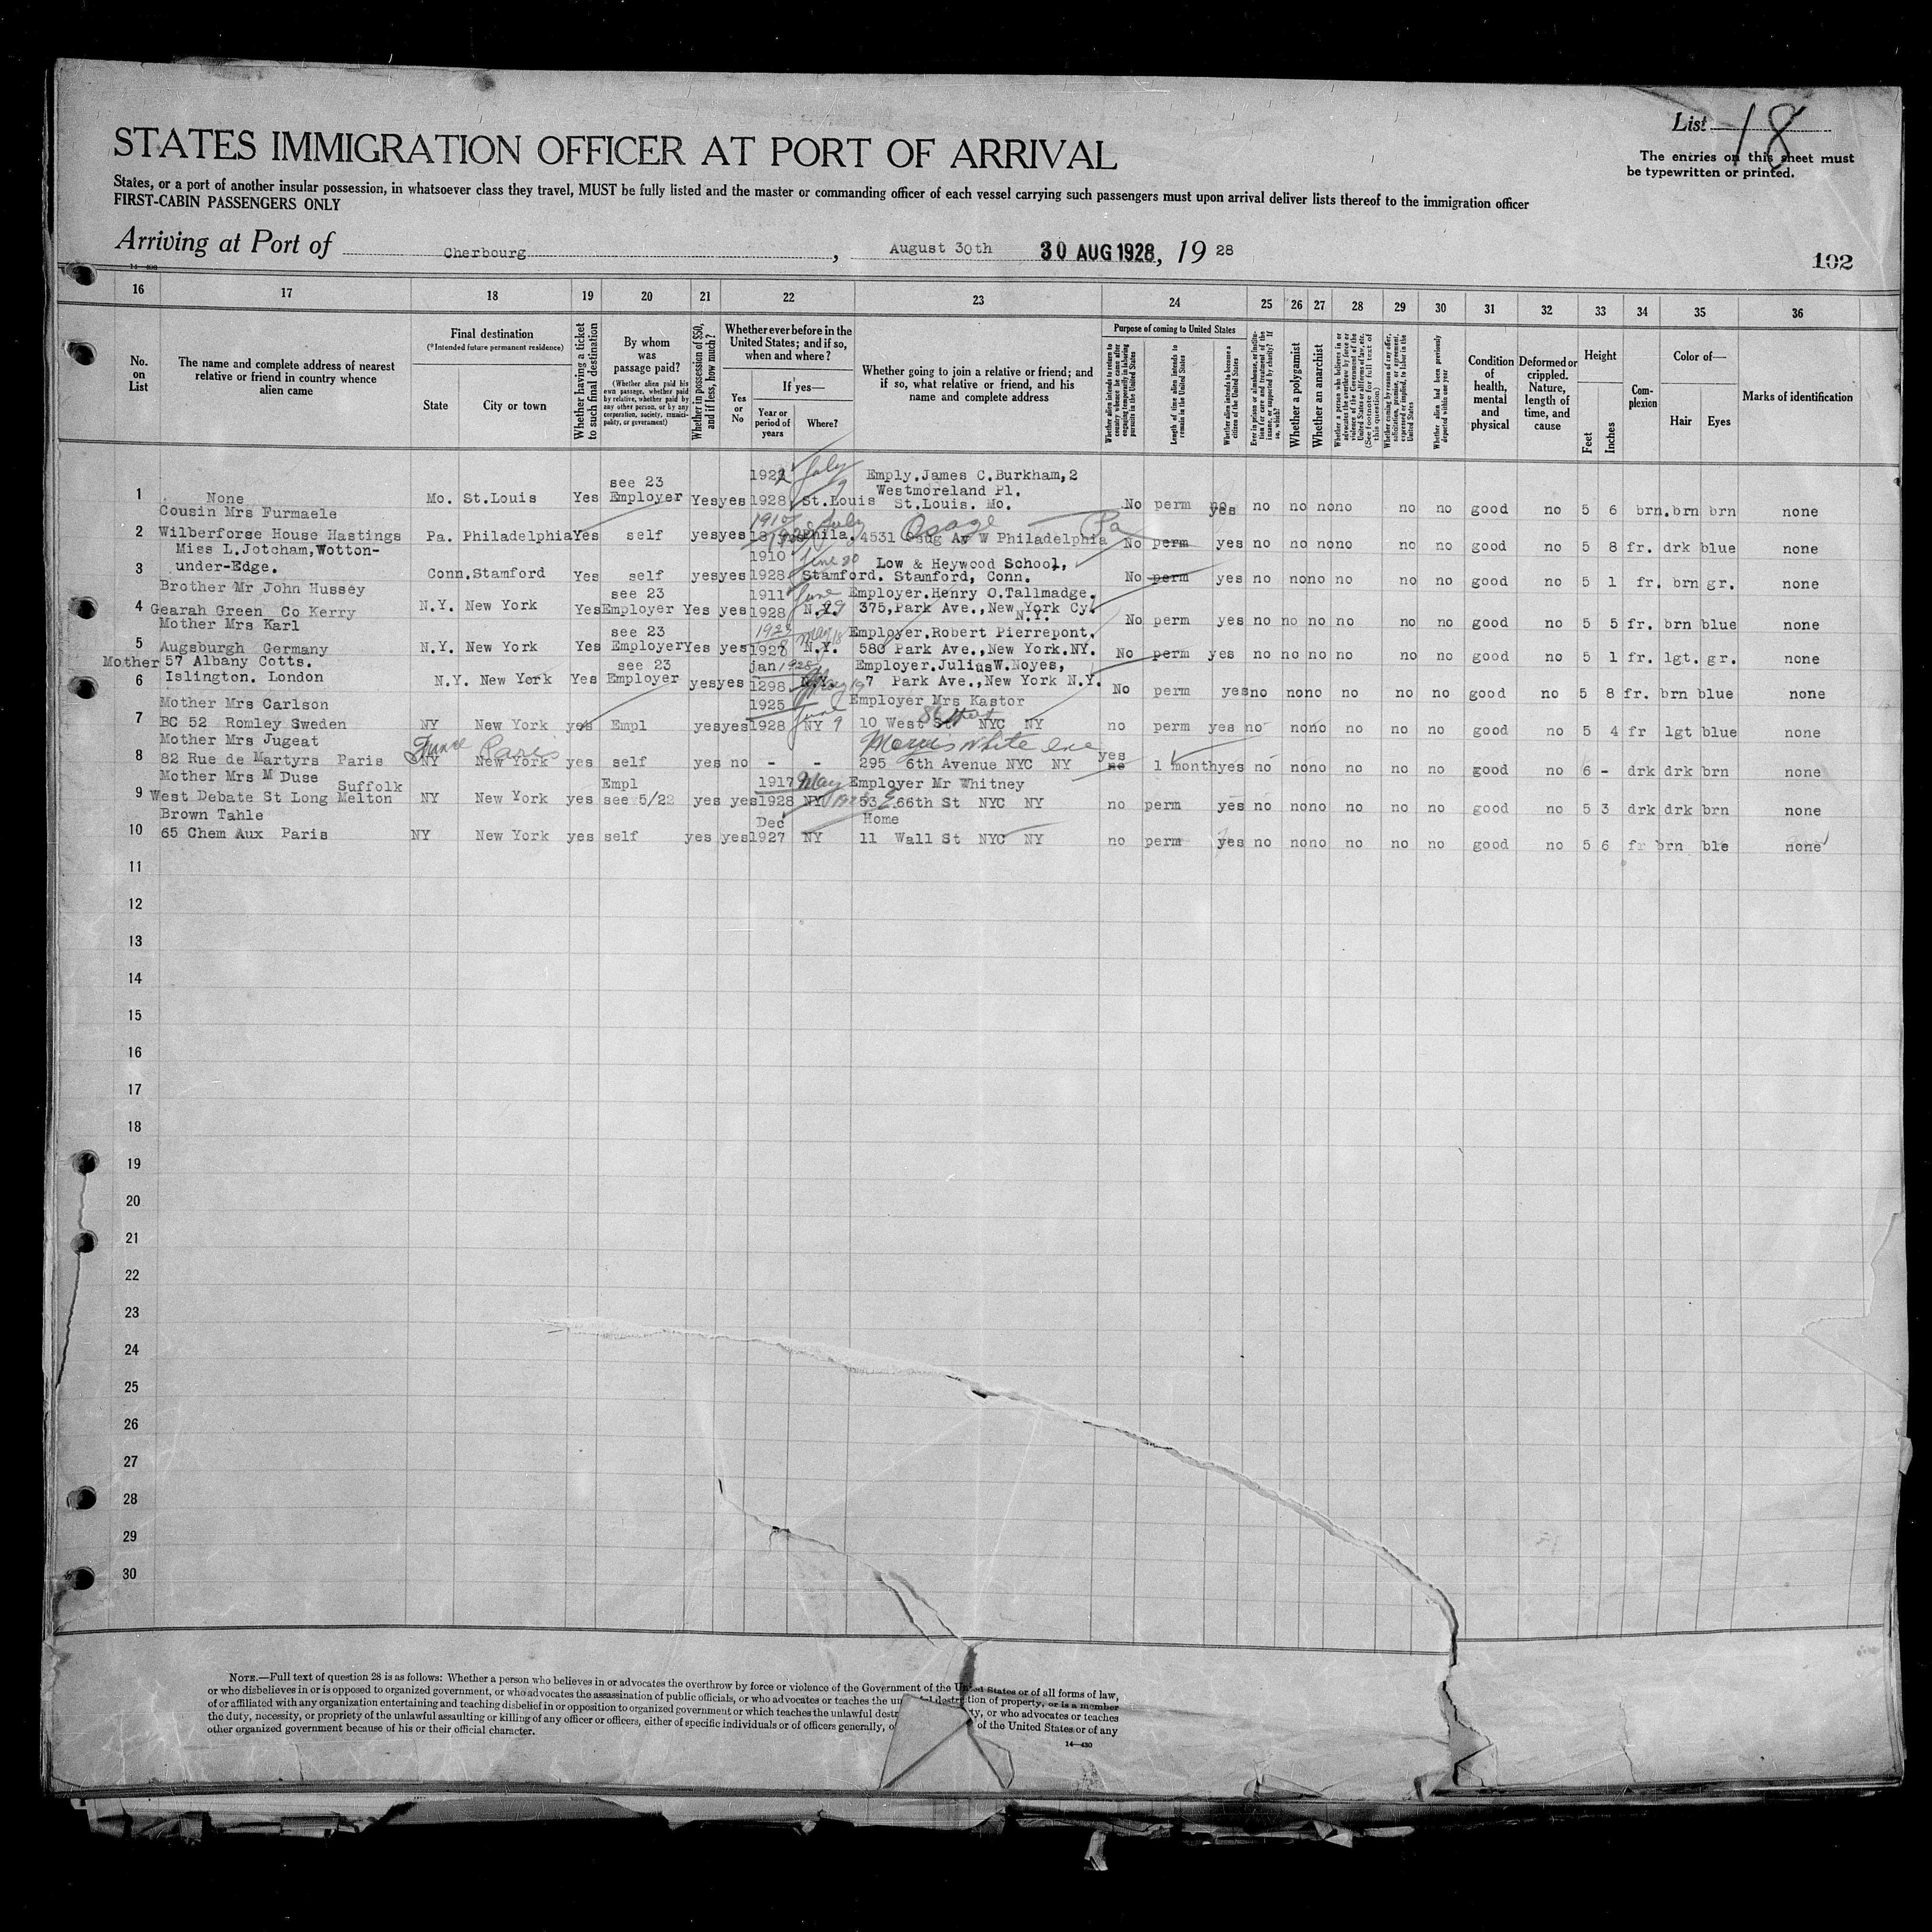 List 18
STATES IMMIGRATION OFFICER AT PORT OF ARRIVAL
The entries on this sheet must
be typewritten or printed.
States, or a port of another insular possession, in whatsoever class they travel, MUST be fully listed and the master or commanding officer of each vessel carrying such passengers must upon arrival deliver lists thereof to the immigration officer
FIRST-CABIN PASSENGERS ONLY
Arriving at Port of Cherbourg, August 30th 30 AUG 1928, 19 28
102
16 17 18 19 20 21 22 23 24 25 26 27 28 29 30 31 32 33 34 35 36
No. on List
The name and complete address of nearest relative or friend in country whence alien came
Final destination
(*Intended future permanent residence)
State
City or town
Whether having a ticket to such final destination
By whom was passage paid?
(Whether alien paid his own passage, whether paid by relative, whether paid by any other person, or by any corporation, society, municipality, or government)
Whether in possession of $50, and if less, how much?
Whether ever before in the United States; and if so, when and where?
Yes or No
If yes—
Year or period of years
Where?
Whether going to join a relative or friend; and if so, what relative or friend, and his name and complete address
Purpose of coming to United States
Whether alien intends to return to country whence he came after engaging temporarily in laboring pursuits in the United States
Length of time alien intends to remain in the United States
Whether alien intends to become a citizen of the United States
Ever in prison or almshouse, or institution for care and treatment of the insane, or supported by charity? If so, which?
Whether a polygamist
Whether an anarchist
Whether a person who believes in or advocates the overthrow by force or violence of the Government of the United States or all forms of law, etc. (See footnote for full text of this question)
Whether coming by reason of any offer, solicitation, promise, or agreement, expressed or implied, to labor in the United States
Whether alien had been previously deported within one year
Condition of health, mental and physical
Deformed or crippled. Nature, length of time, and cause
Height
Feet
Inches
Complexion
Color of—
Hair
Eyes
Marks of identification
1 None Mo. St.Louis Yes see 23 Employer Yes yes 1922 1928 July 9 St.Louis Emply.James C.Burkham,2 Westmoreland Pl. St.Louis. Mo. No perm no yes no no no no no no good no 5 6 brn. brn brn none
2 Cousin Mrs Furmaele Wilberforse House Hastings Pa. Philadelphia Yes self yes yes 1910 July Phila. 4531 Osage Av W Philadelphia Pa No perm yes no no no no no no good no 5 8 fr. drk blue none
3 Miss L.Jotcham,Wotton-under-Edge. Conn. Stamford Yes self yes yes 1910 1928 June 30 Stamford. Low & Heywood School, Stamford, Conn. No perm yes no no no no no no good no 5 1 fr. brn gr. none
4 Brother Mr John Hussey Gearah Green Co Kerry N.Y. New York Yes see 23 Employer Yes yes 1911 1928 June 29 N.Y. Employer.Henry O.Tallmadge. 375,Park Ave.,New York Cy. N.Y. No perm yes no no no no no no good no 5 5 fr. brn blue none
5 Mother Mrs Karl Augsburgh Germany N.Y. New York Yes see 23 Employer Yes yes 1923 1928 May 18 N.Y. Employer.Robert Pierrepont, 580 Park Ave.,New York.NY. No perm yes no no no no no no good no 5 1 fr. lgt. gr. none
6 Mother 57 Albany Cotts. Islington. London N.Y. New York Yes see 23 Employer yes yes jan 1928 1298 May 19 N.Y. Employer.Julius W.Noyes, 7 Park Ave.,New York N.Y. No perm yes no no no no no no good no 5 8 fr. brn blue none
7 Mother Mrs Carlson BC 52 Romley Sweden NY New York yes Empl yes yes 1925 1928 June NY 9 Employer Mrs Kastor 10 West 86 St NYC NY no perm yes no no no no no no good no 5 4 fr lgt blue none
8 Mother Mrs Jugeat 82 Rue de Martyrs Paris NY France New York Paris yes self yes no - - Morris White Inc 295 6th Avenue NYC NY no yes 1 month yes no no no no no no good no 6 - drk drk brn none
9 Mother Mrs M Duse Suffolk West Debate St Long Melton NY New York yes Empl see 5/22 yes yes 1917 1928 May NY 1928 Employer Mr Whitney 53 E 66th St NYC NY no perm yes no no no no no no good no 5 3 drk drk brn none
10 Brown Tahle 65 Chem Aux Paris NY New York yes self yes yes Dec 1927 NY Home 11 Wall St NYC NY no perm yes no no no no no no good no 5 6 fr brn ble none
11
12
13
14
15
16
17
18
19
20
21
22
23
24
25
26
27
28
29
30
NOTE.—Full text of question 28 is as follows: Whether a person who believes in or advocates the overthrow by force or violence of the Government of the United States or of all forms of law,
or who disbelieves in or is opposed to organized government, or who advocates the assassination of public officials, or who advocates or teaches the destruction of property, or is a member
of or affiliated with any organization entertaining and teaching disbelief in or opposition to organized government or which teaches the unlawful or who advocates or teaches
the duty, necessity, or propriety of the unlawful assaulting or killing of any officer or officers, either of specific individuals or of officers generally, of the United States or of any
other organized government because of his or their official character.
14—430